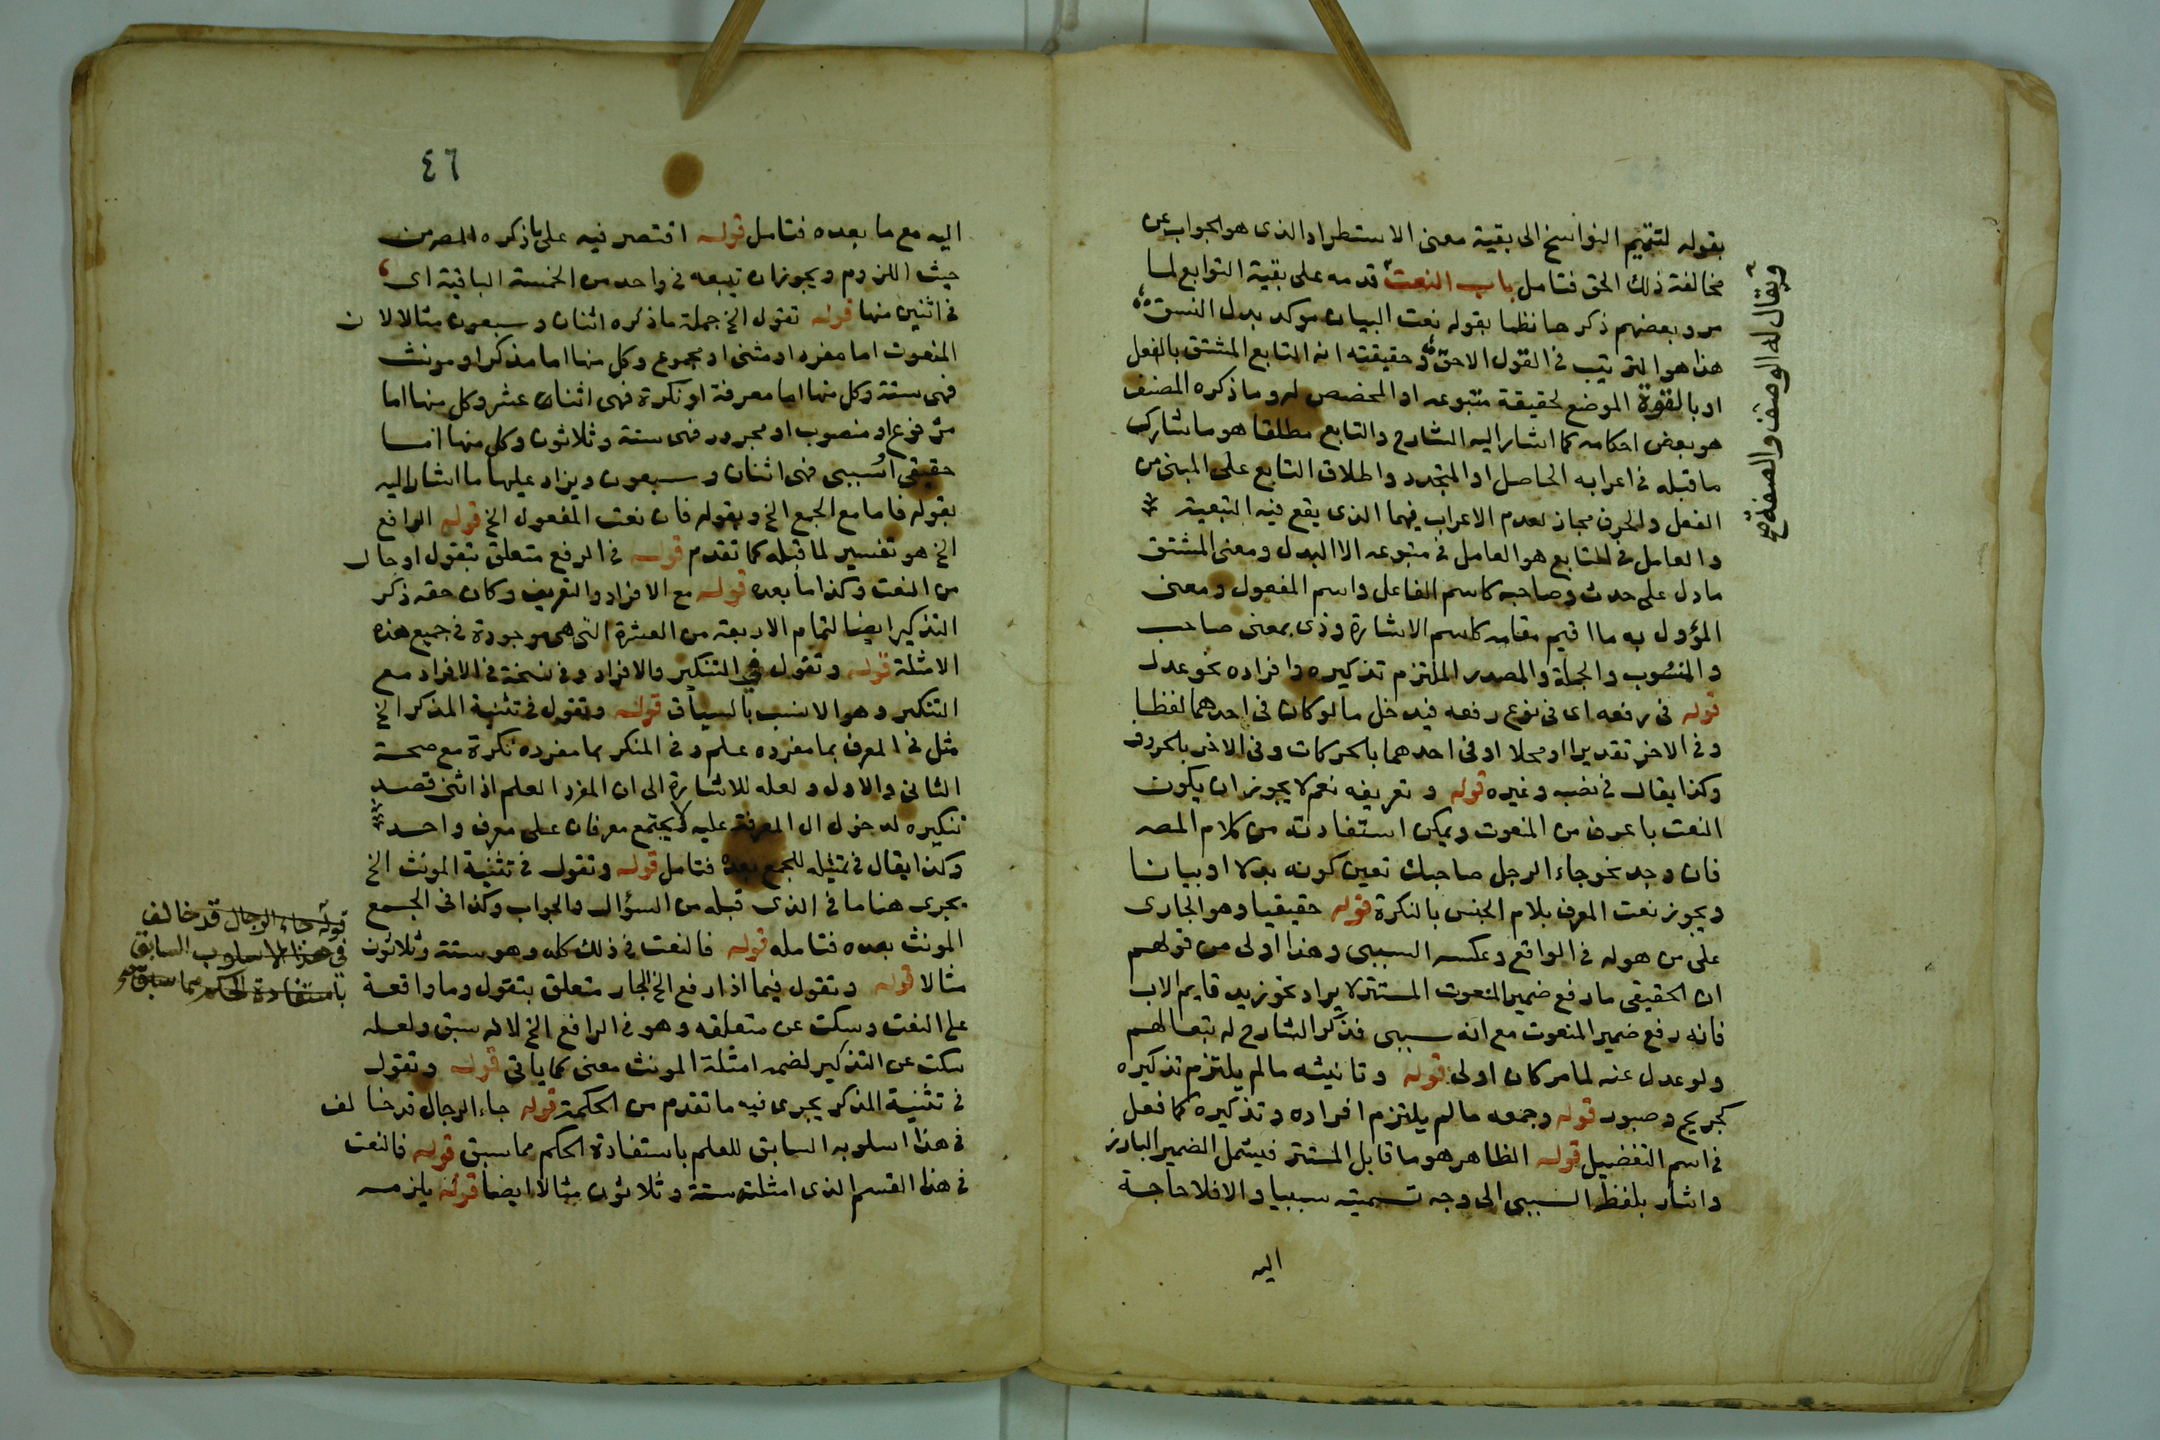 بقوله لتتميم النواسخ الى بقية معنى الاستطراد الذى هو الجواب عن
مخالفة ذلك الحق فتامل باب النعت قدمه على بقية التوابع لما
مر وبعضهم ذكرها نظما بقوله نعت البيان موكد بدل النسق
هذا هو الترتيب فى القول الاحق وحقيقته انه التابع المشتق بالفعل
او بالقوة الموضع لحقيقة متبوعه او المخصص له وما ذكره المصنف
هو بعض احكامه كما اشار اليه الشارح والتابع مطلقا هو ما شارك
ما قبله فى اعرابه الحاصل او المتجدد واطلاق التابع على المبنى من
الفعل والحرف مجاز لعدم الاعراب فيهما الذى يقع فيه التبعية
والعامل فى التابع هو العامل فى متبوعه الا البدل ومعنى المشتق
ما دل على حدث وصاحبه كاسم الفاعل واسم المفعول ومعنى
المؤول به ما اقيم مقامه كاسم الاشارة وذى بمعنى صاحب
والمنسوب والجملة والمصدر الملتزم تذكيره وافراده نحو عدل
قوله فى رفعه اى فى نوع رفعه فيدخل ما لو كان فى احدهما لفظا
وفى الاخر تقديرا او محلا او فى احدهما بالحركات وفى الاخر بالحروف
وكذا يقال فى نصبه وغيره قوله وتعريفه نعم لا يجوز ان يكون
النعت باعرف من المنعوت ويمكن استفادته من كلام المصه
فان وجد نحو جاء الرجل صاحبك تعين كونه بدلا او بيانا
ويجوز نعت المعرف بلام الجنس بالنكرة قوله حقيقيا وهو الجارى
على من هو له فى الواقع وعكسه السببى وهذا اولى من قولهم
ان الحقيقى ما رفع ضمير المنعوت المستتر لا يراد نحو زيد قايم الاب
فانه رفع ضمير المنعوت مع انه سببى فذكر الشارح له تبعا لهم
ولو عدل عنه لما مر كان اولى قوله وتانيثه ما لم يلتزم تذكيره
كجريح وصبور قوله وجمعه ما لم يلتزم افراده وتذكيره كما فعل
فى اسم التفضيل قوله الظاهر هو ما قابل المستتر فيشمل الضمير البارز
واشار بلفظ السببى الى وجه تسميته سببيا والا فلا حاجة
اليه
ويقال له الوصف والصفة صح
٤٦
اليه مع ما بعده فتامل قوله اقتصر فيه على ما ذكره المصر من
حيث اللزوم ويجوز ان تيبعه فى واحد من الخمسة الباقية اى
فى اثنين منها قوله تقول الخ جملة ما ذكره اثنان وسبعون مثالا لان
المنعوت اما مفرد او مثنى او مجموع وكل منها اما مذكر او مونث
فهى ستة وكل منها اما معرفة او نكرة فهى اثنان عشر وكل منها اما
مرفوع او منصوب او مجرور فهى ستة وثلاثون وكل منها اما
حقيقى او سببى فهى اثنان وسبعون ويزاد عليها ما اشار اليه
بقوله فاما مع الجمع الخ وبقوله فان نعت المفعول الخ قوله الرافع
الخ هو تفسير لما قبله كما تقدم قوله فى الرفع متعلق بتقول او حال
من النعت وكذا ما بعده قوله مع الافراد والتعريف وكان حقه ذكر
التذكير ايضا لتمام الاربعة من العشرة التى هى موجودة فى جميع هذه
الامثلة قوله وتقول فى التنكير والافراد وفى نسخة فى الافراد مع
التنكير وهو الانسب بالسياق قوله وتقول فى تثنية المذكر الخ
مثل فى المعرف بما مفرده علم وفى المنكر بما مفرده نكرة مع صحة
الثانى والاول ولعله للاشارة الى ان المفرد العلم اذا ثنى قصد
تنكيره لدخول ال المعرفة عليه لا يجتمع معرفان على معرف واحد
وكذا يقال فى تمثيله للجمع بعده فتامل قوله وتقول فى تثنية المونث الخ
يجرى هنا ما فى الذى قبله من السؤال والجواب وكذا فى الجمع
المونث بعده فتامله قوله فالنعت فى ذلك كله وهو ستة وثلاثون
مثالا قوله وتقول فيما اذا رفع الخ الجار متعلق بتقول وما واقعة
على النعت وسكت عن متعلقه وهو فى الرافع الخ لانه سبق ولعله
سكت عن التذكير لضمه امثلة المونث معنى كما ياتى قوله وتقول
فى تثنية المذكر يجرى فيه ما تقدم من الحكمة قوله جاء الرجال قد خالف
فى هذا اسلوبه السابق للعلم باستفادة الحكم مما سبق قوله فالنعت
فى هذا القسم الذى امثلته ستة وثلاثون مثالا ايضا قوله يلزمه
قوله جاء الرجال قد خالف
فى هذا الاسلوب السابق
باستفادة الحكم مما سبق